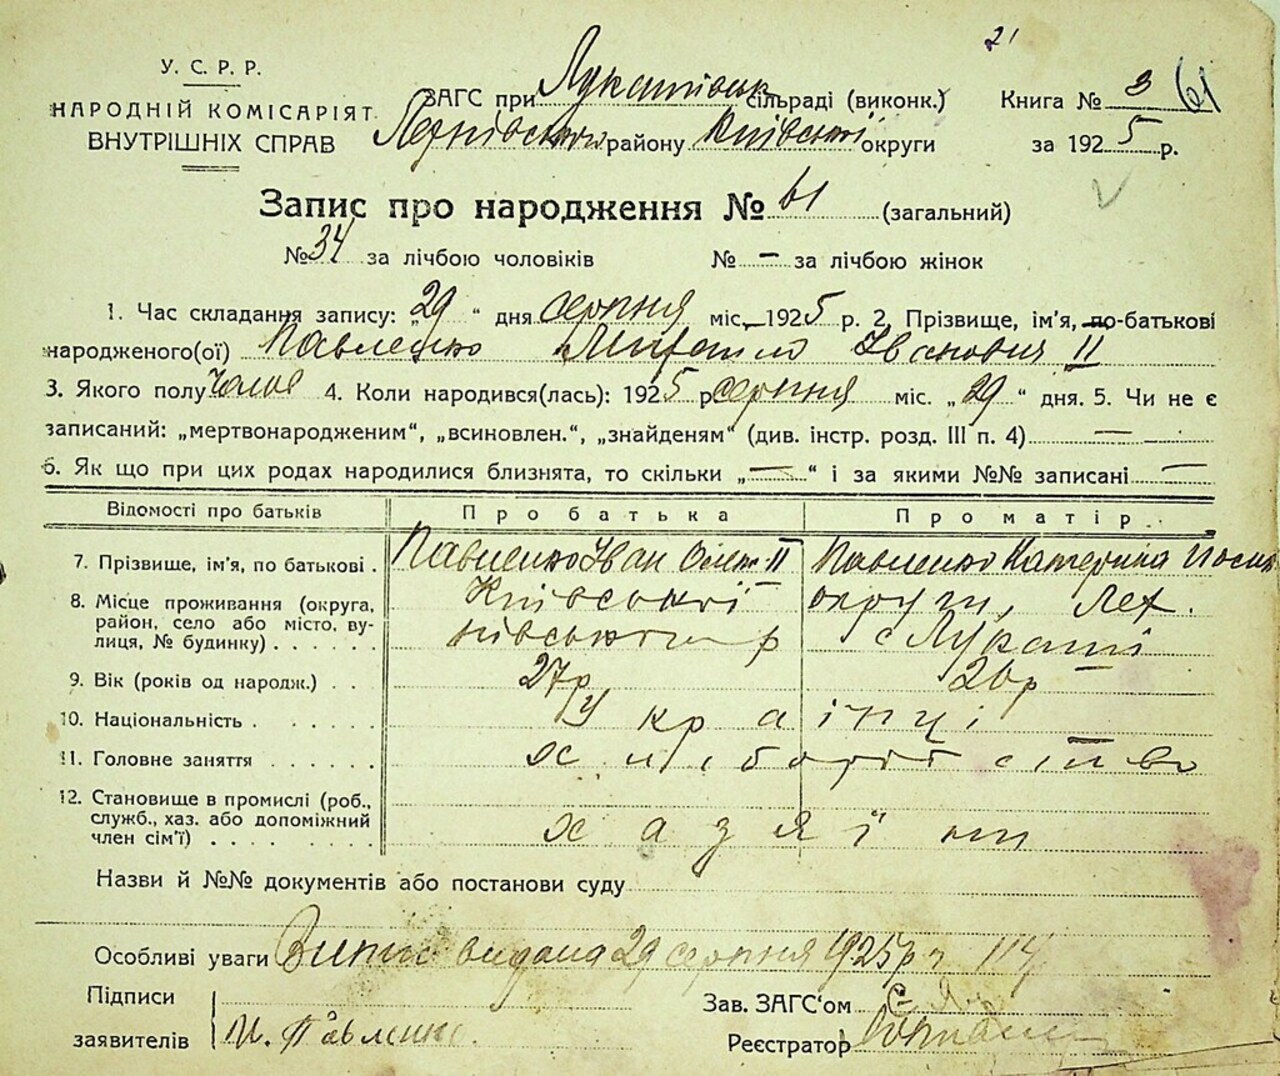 21
У. С. Р. Р.
НАРОДНІЙ КОМІСАРІЯТ
ВНУТРІШНІХ СПРАВ
ЗАГС при Лукашівськ сільраді (виконк.)
району Київської округи
Книга № 3 61
за 1925 р.
Запис про народження № 61 (загальний)
№ 34 за лічбою чоловіків № — за лічбою жінок
1. Час складання запису: „29“ дня серпня міс. 1925 р. 2. Прізвище, ім'я, по-батькові
народженого(ої) Павленко Михайло Іванович II
3. Якого полу Чолов 4. Коли народився(лась): 1925 р серпня міс. „29“ дня. 5. Чи не є
записаний: „мертвонародженим“, „всиновлен.“, „знайденям“ (див. інстр. розд. III п. 4) —
6. Як що при цих родах народилися близнята, то скільки „—“ і за якими №№ записані —
Відомості про батьків Про батька Про матір.
7. Прізвище, ім'я, по батькові . Павленко Іван Олек. II Павленко Катерина
8. Місце проживання (округа, Київської округи,
район, село або місто, ву-
лиця, № будинку) . . . . . . нівського р с Лукаші
9. Вік (років од народж.) . . 27р 26р
10. Національність . . . . . . Українці
11. Головне заняття . . . . . . хліборобство
12. Становище в промислі (роб.,
служб., хаз. або допоміжний
член сім'ї) . . . . . . . . хазяїни
Назви й №№ документів або постанови суду
Особливі уваги Випис видана 29 серпня 1925р 114
Підписи
заявителів И. Павленко.
Зав. ЗАГС‘ом
Реєстратор